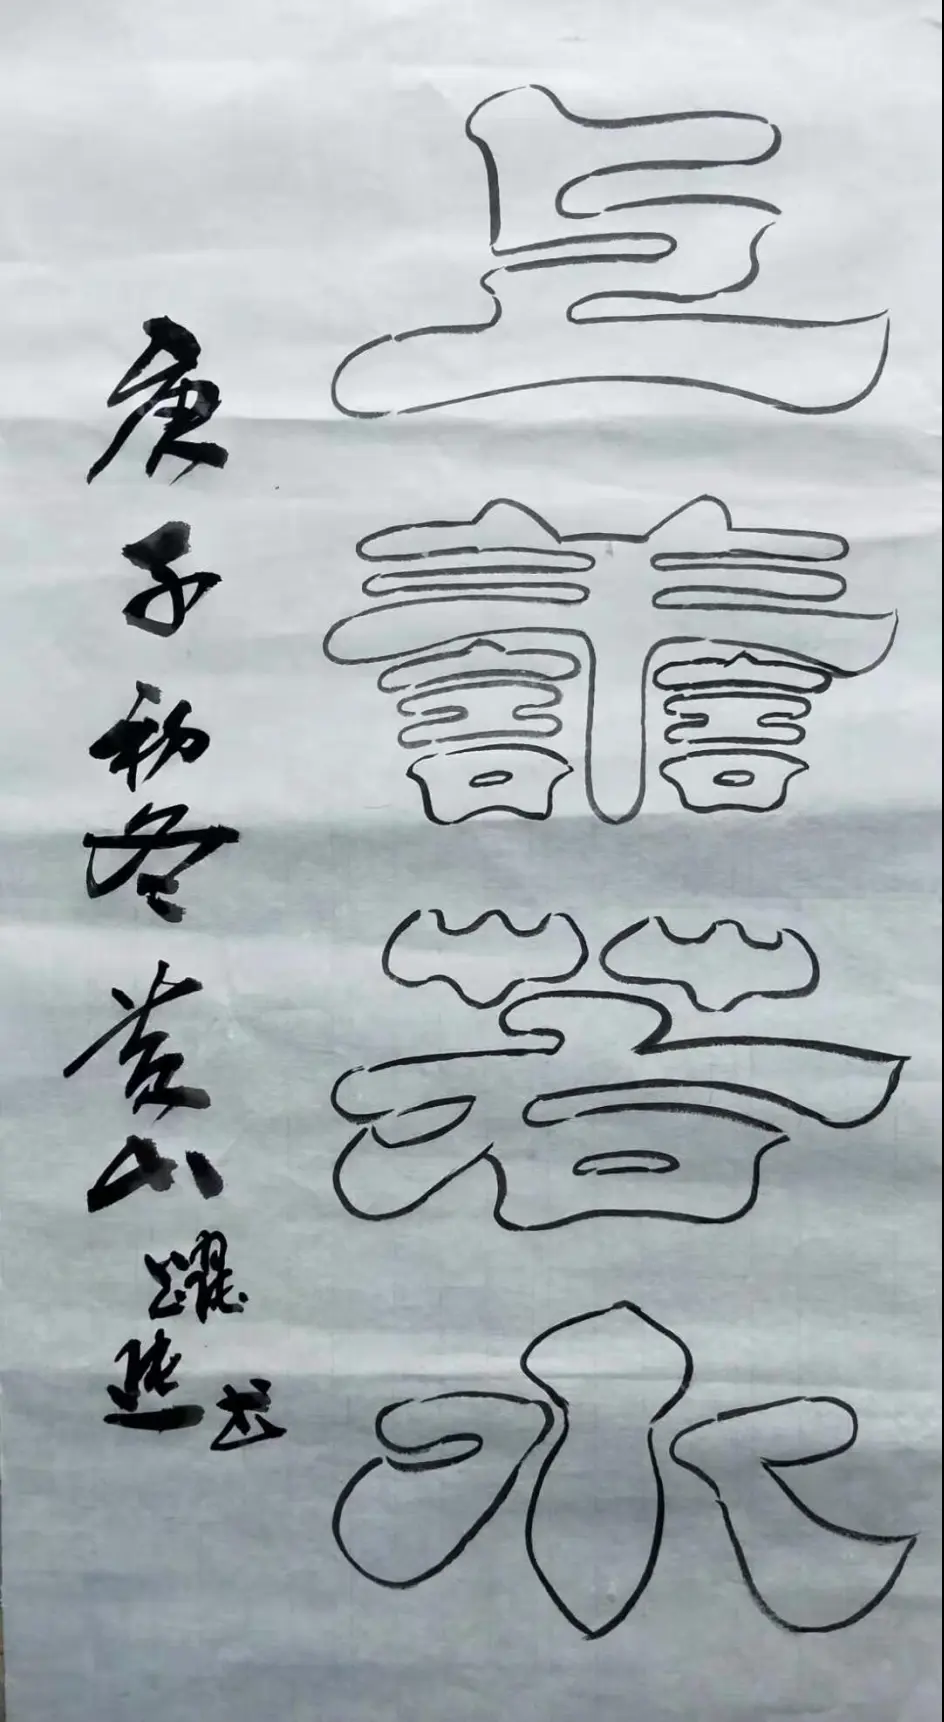 上善若水
庚子初冬黄山躍進书